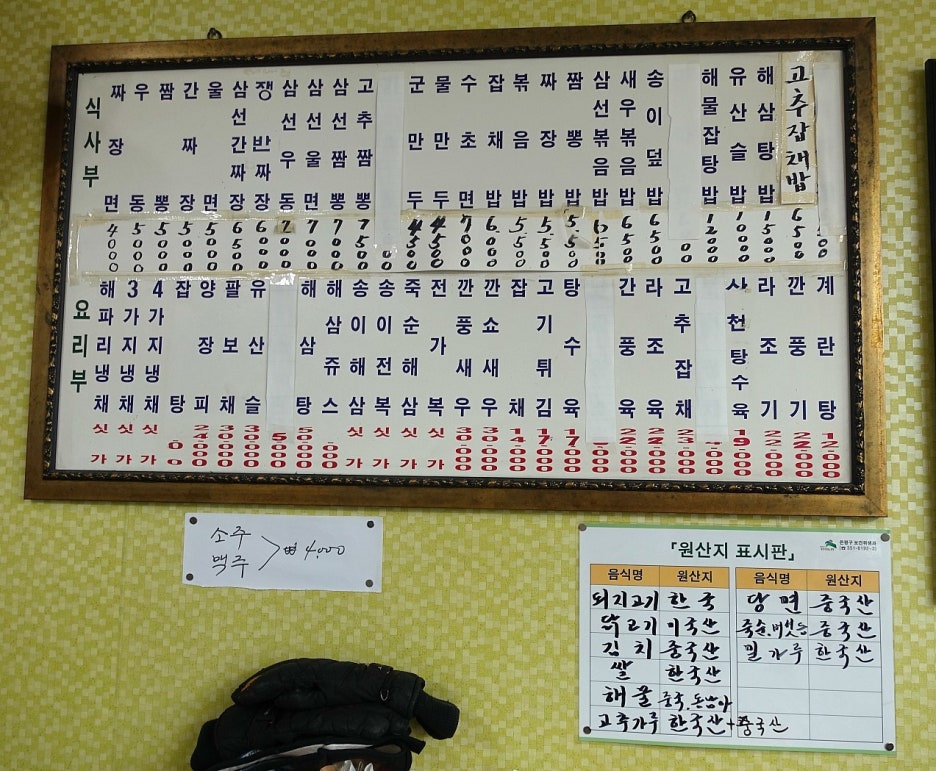 식사부
짜장면 4000
우동 5000
짬뽕 5000
간짜장 5000
울면 5000
삼선간짜장 6500
쟁반짜장 6000
삼선우동 7000
삼선울면 7000
삼선짬뽕 7000
고추짬뽕 7500
군만두 4500
물만두 4500
수초면 7000
잡채밥 6000
볶음밥 5500
짜장밥 5500
짬뽕밥 5500
삼선볶음밥 6500
새우볶음밥 6500
송이덮밥 6500
해물잡탕밥 12000
유산슬밥 10000
해삼탕밥 15000
고추잡채밥 6500
요리부
해파리냉채 싯가
3가지냉채 싯가
4가지냉채 싯가
잡탕
양장피 24000
팔보채 30000
유산슬 30000
해삼탕
해삼쥬스
송이해삼 싯가
송이전복 싯가
죽순해삼 싯가
전가복 싯가
깐풍새우 30000
깐쇼새우 30000
잡채 14000
고기튀김 17000
탕수육 17000
간풍육 22000
라조육 22000
고추잡채 23000
사천탕수육 19000
라조기 22000
깐풍기 22000
계란탕 12000
소주
맥주 > ₩ 4,000
「원산지 표시판」
은평구 보건위생과
음식명 원산지 음식명 원산지
돼지고기 한국 당면 중국산
닭고기 미국산 죽순.버섯등 중국산
김치 중국산 밀가루 한국산
쌀 한국산
해물 중국.동남아
고추가루 한국산+중국산